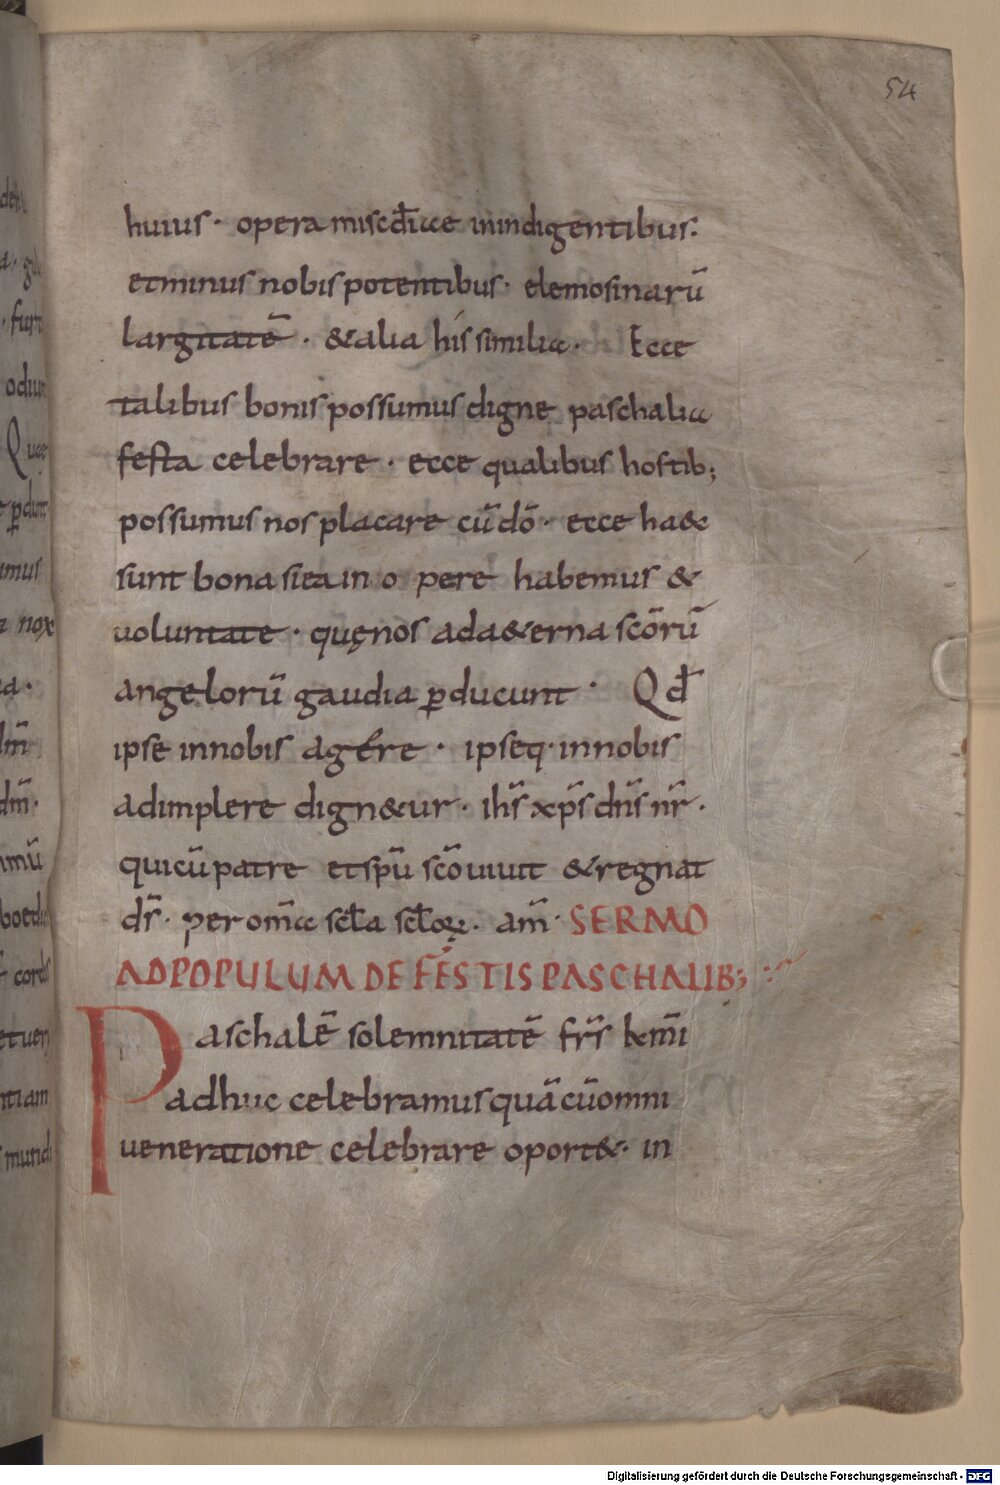 54
huius · opera miscđiae inindigentibus:
etminus nobis potentibus · elemosinarū
largitatē · &alia his similia · Ecce
talibus bonis possumus digne paschalia
festa celebrare · ecce qualibus hostib;
possumus nos placare cū dō · ecce ha&c
sunt bona si ea in o pere habemus &
uoluntate · quę nos ad a&erna scōrū
angelorū gaudia ꝑducunt · Qđ
ipse innobis agere · ipseq· innobis
adimplere dign&ur · ihs̄ xp̄s dn̄s nr̄ ·
qui cū patre et spū scō uiuit & regnat
ds̄ · per om̄a scła scłoꝝ · am̄ · SERMO
AD POPULUM DE FESTIS PASCHALIB;
Paschalē solemnitatē frs̄ kmī
adhuc celebramus quā cū omni
ueneratione celebrare oport& · in
Digitalisierung gefördert durch die Deutsche Forschungsgemeinschaft - DFG